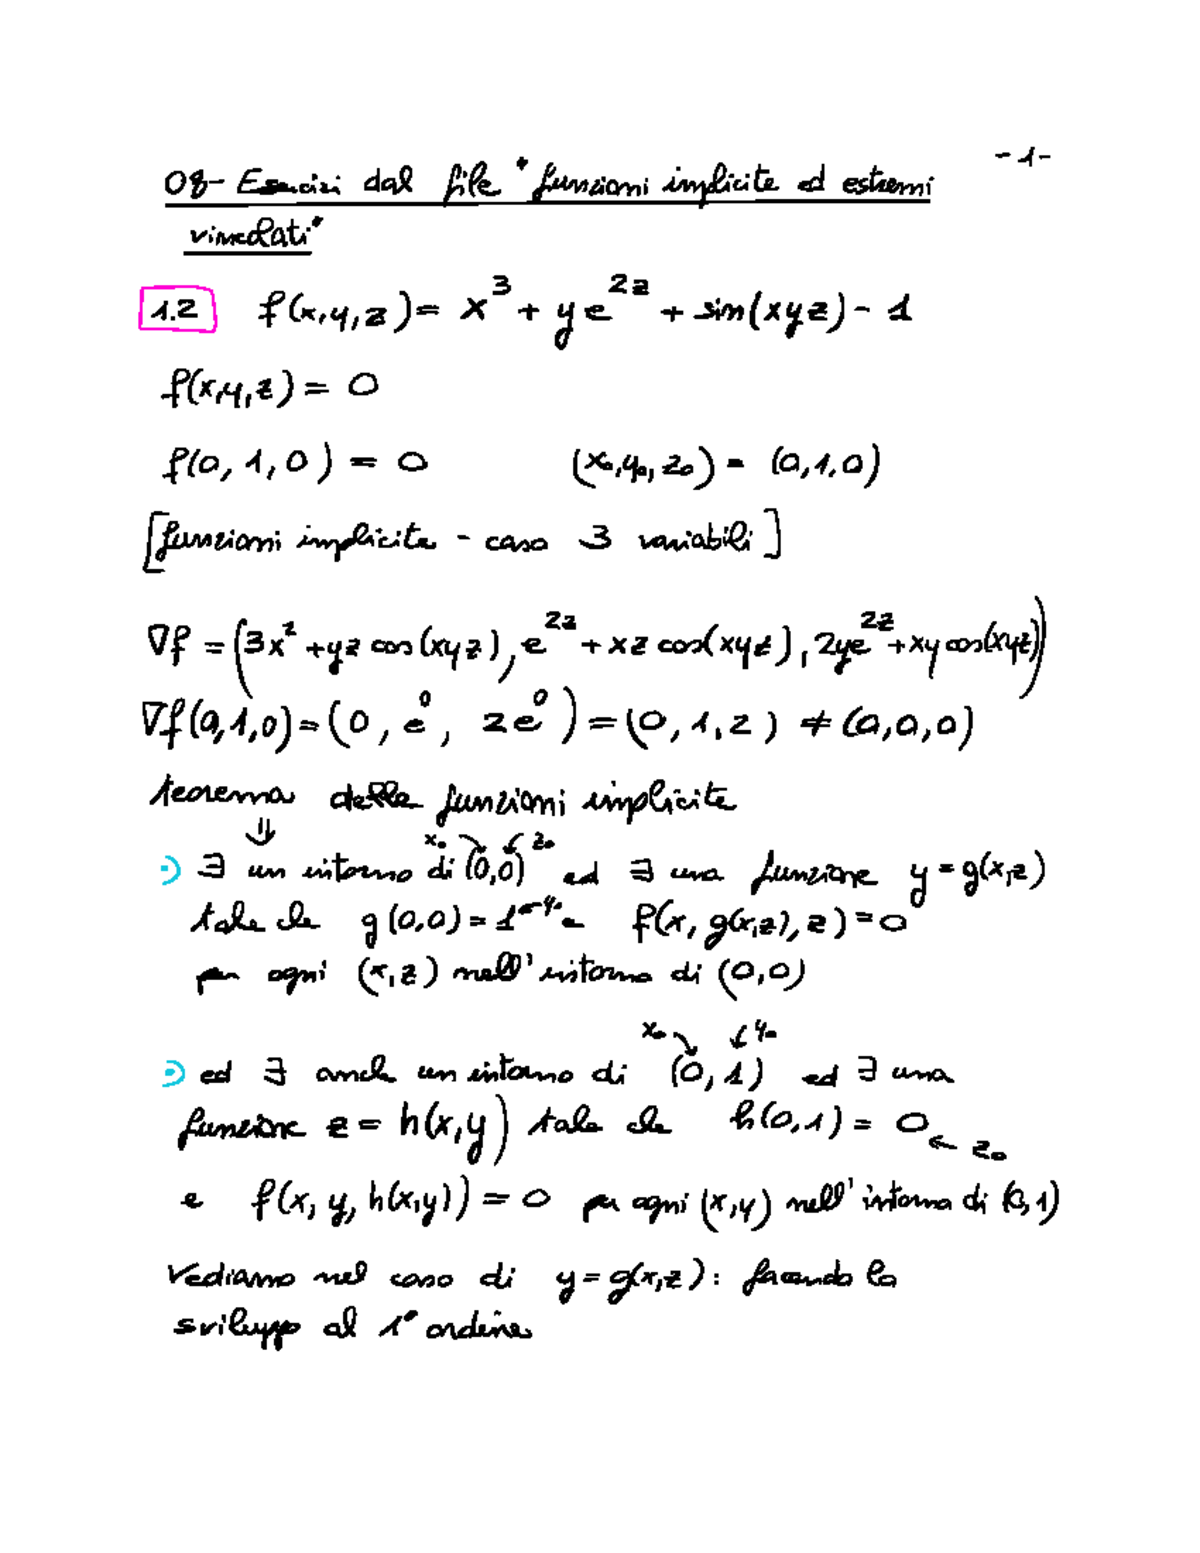 - 1 -
08- Esercizi dal file "funzioni implicite ed estremi
vincolati"
1.2 f(x,y,z) = x³ + y e²ᶻ + sin(xyz) - 1
f(x,y,z) = 0
f(0, 1, 0) = 0 (x₀,y₀,z₀) = (0,1,0)
[funzioni implicite - caso 3 variabili]
∇f = (3x² + yz cos(xyz), e²ᶻ + xz cos(xyz), 2ye²ᶻ + xy cos(xyz))
∇f(0,1,0) = (0, e⁰, 2e⁰) = (0, 1, 2) ≠ (0,0,0)
teorema delle funzioni implicite
⇓ x₀ ↘ ↙ z₀
•) ∃ un intorno di (0,0) ed ∃ una funzione y = g(x,z)
tale che g(0,0) = 1 ← y₀ e f(x, g(x,z), z) = 0
per ogni (x,z) nell'intorno di (0,0)
x₀ ↘ ↙ y₀
•) ed ∃ anche un intorno di (0,1) ed ∃ una
funzione z = h(x,y) tale che h(0,1) = 0 ← z₀
e f(x, y, h(x,y)) = 0 per ogni (x,y) nell'intorno di (0,1)
Vediamo nel caso di y = g(x,z): facendo lo
sviluppo al 1° ordine